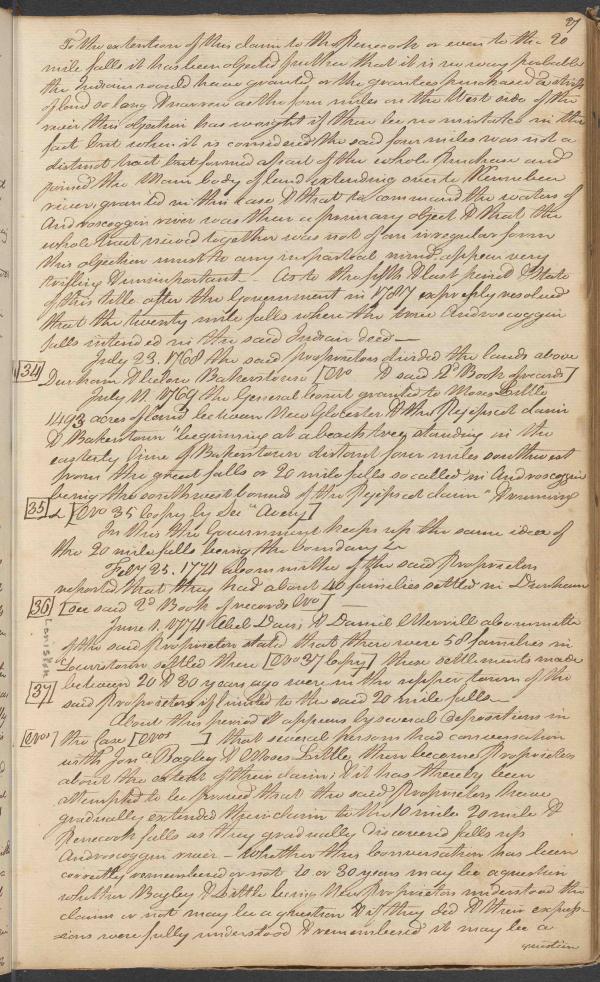 27
To the extention of this claim to the Pencook or even to the 20
mile falls it has been objected further that it is no way probable
the Indians would have granted or the grantees purchased a strip
of land so long & narrow as the four miles on the West side of the
river this objection has weight if there be no mistake in the
fact but when it is considered the said four miles was not a
distinct tract but formed a part of the whole Purchase and
joined the main body of land extending over to Kennebec
river, granted in this case & that to command the waters of
Androscoggin river was then a primary object & that the
whole tract viewed together was not of an irregular form
this objection must to any impartial mind appear very
trifling & unimportant — As to the fifth & last period & State
of this title after the Government in 1787 expressly resolved
that the twenty mile falls where the true Androscoggin
falls intended in the said Indian deed —
July 23. 1768 the said proprietors divided the lands above
34 Durham & below Bakerstown [No & said 2d Book of records]
July 11. 1769 the General Court granted to Moses Little
1493 acres of land between New Glocester & the Pejepscot claim
& Bakerstown "beginning at a beach tree standing in the
easterly line of Bakerstown distant four miles southwest
from the great falls or 20 mile falls so called in Androscoggin
being the southwest bound of the Pejepscot claim" & running
35 & [No 35 Copy by Sec "Avery]
In this the Government keeps up the same idea of
the 20 mile falls being the boundary &
Feby 25. 1774 Committee of the said Proprietors
reported that they had about 40 families settled in Durham
36 [see said 2d Book of records No ] —
June 1. 1774 Abel Davis & Daniel Merrill a Committee
of the said Proprietors stated that there were 58 families in
Lewiston
Lewistown settled there [No 37 Copy] these settlements made
37 between 20 & 30 years ago were in the upper towns of the
said Proprietors if limited to the said 20 mile falls —
About this period it appears by several depositions in
[Nos] the Case [Nos ] that several persons had conversation
with Jona Bagley & Moses Little then become Proprietors
about the extent of their claim; & it has thereby been
attempted to be proved that the said Proprietors have
gradually extended their claim to the 10 mile 20 mile &
Pencook falls as they gradually discovered falls up
Androscoggin river — Whether this Conversation has been
correctly remembered or not 20 or 30 years may be a question
whether Bagley & Little being New Proprietors understood the
claim or not may be a question & if they did & their express-
ions were fully understood & remembered it may be a
question